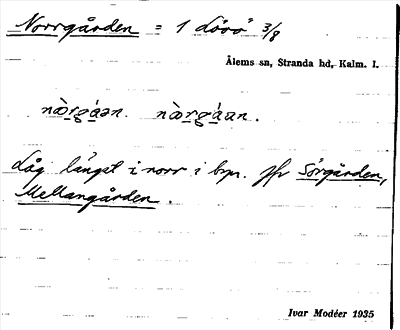 Norrgården = 1 Lörö 3/8
Ålems sn, Stranda hd, Kalm. l.
nòrgáən. nòrgáun.
Låg längst i norr i byn. Jfr Sörgården,
Mellangården.
Ivar Modéer 1935